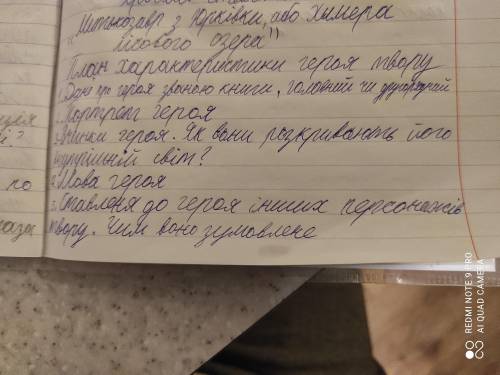 "Митькозавр з Юрківки, або Химера
лісового озера"
План характеристики героя твору
1. Дані про героя званою книги, головний чи другорядний
2. Портрет героя
3. Вчинки героя. Як вони розкривають його
внутрішній світ?
4. Мова героя
5. Ставленя до героя інших персонажів
твору. Чим воно зумовлене
ві?
по
REDMI NOTE 9 PRO
AI QUAD CAMERA